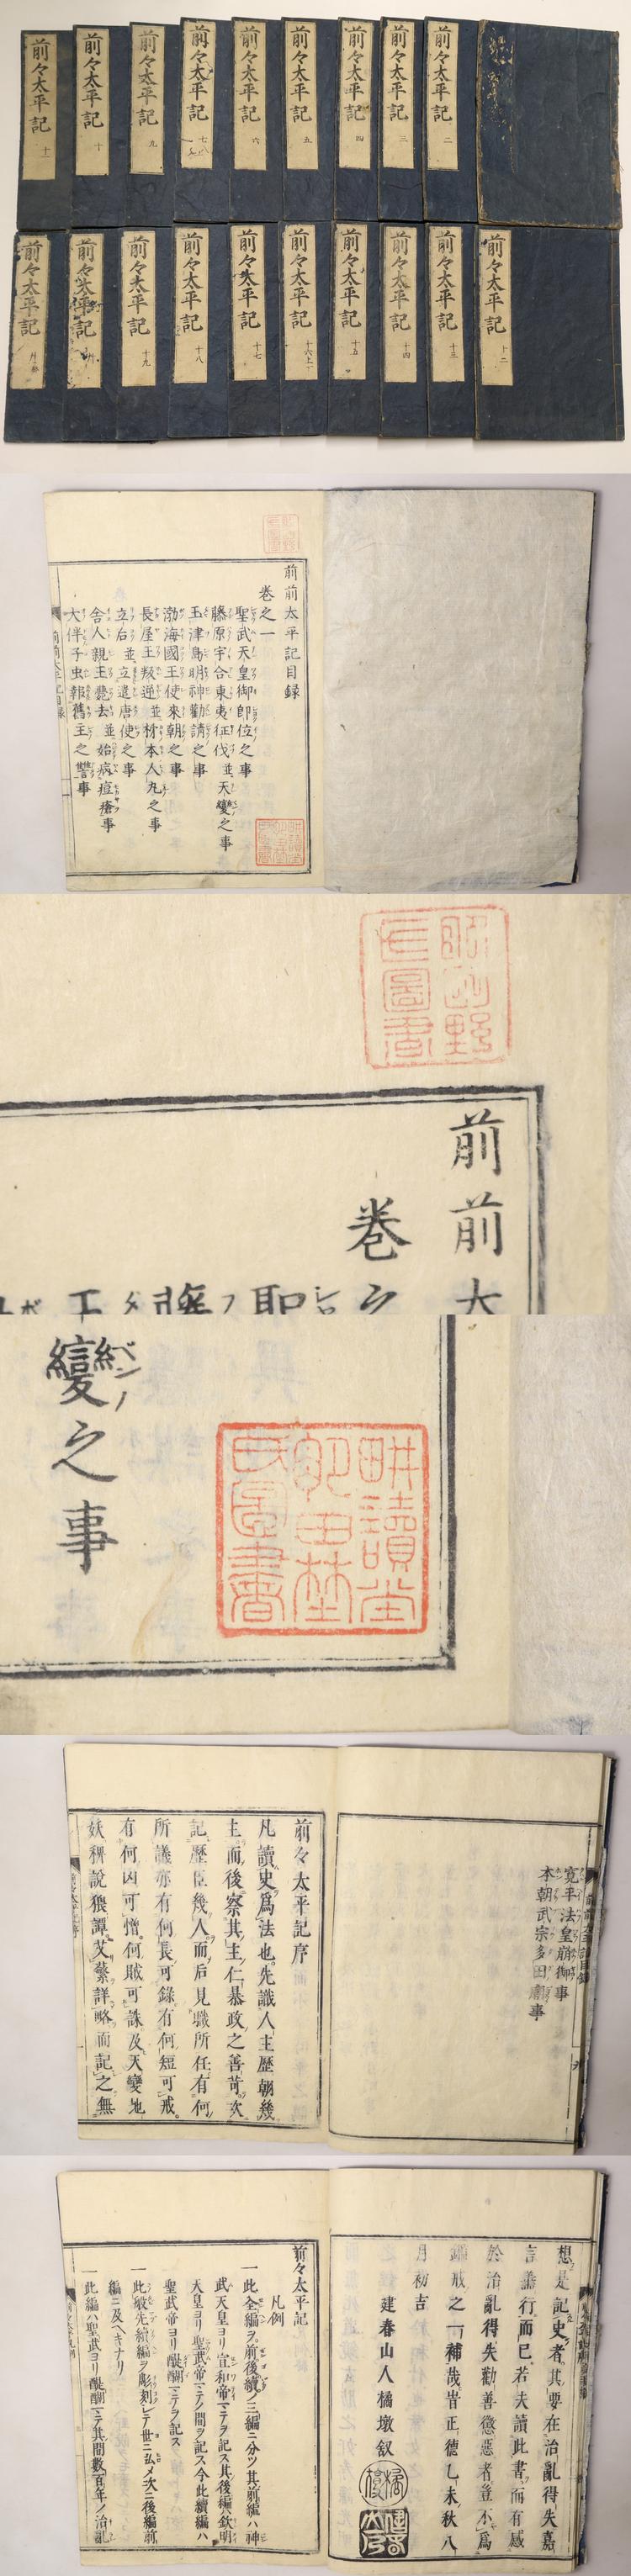 前々太平記 二
前々太平記 三
前々太平記 四
前々太平記 五
前々太平記 六
前々太平記 七八
前々太平記 九
前々太平記 十
前々太平記 十一
前々太平記 十二
前々太平記 十三
前々太平記 十四
前々太平記 十五
前々太平記 十六上下
前々太平記 十七
前々太平記 十八
前々太平記 十九
前々太平記
前々太平記
前前太平記目録
巻之一
聖武天皇御即位之事
藤原宇合東夷征伐並天變之事
玉津島明神勸請之事
渤海國王使來朝之事
長屋王叛逆並柿本人丸之事
立后並立遣唐使之事
舎人親王薨去並始病痘瘡事
大伴子虫報舊主之讐事
前前太
巻之
變之事
耕讀堂
圖書
寛平法皇崩御事
本朝武宗多田廟事
前々太平記序
凡讀史爲法也先識人主歴朝幾
主而後察其主仁暴政之善苛次
記歴臣幾人而后見職所任有何
所議亦有何長可錄有何短可戒
有何凶可憎何賊可誅及天變地
妖稗說猥譚芟蘩詳略而記之無
想是記史者其要在治亂得失嘉
言善行而已若夫讀此書而有感
於治亂得失勸善懲惡者豈不爲
鍳戒之一補哉旹正德乙未秋八
月初吉
建春山人橘墩叙
前々太平記
凡例
一此全編ヲ前後續ノ三編ニ分ツ其前編ハ神
武天皇ヨリ宣和帝ニテヲ記ス其後編ハ欽明
天皇ヨリ聖武帝ニテノ間ヲ記ス今此續編ハ
聖武帝ヨリ醍醐ニテヲ記ス
一此般先續編ヲ彫刻シテ世ニ弘メ次ニ後編前
編ニ及ヘキナリ
一此編ハ聖武ヨリ醍醐ニテ其間數百年ノ治亂